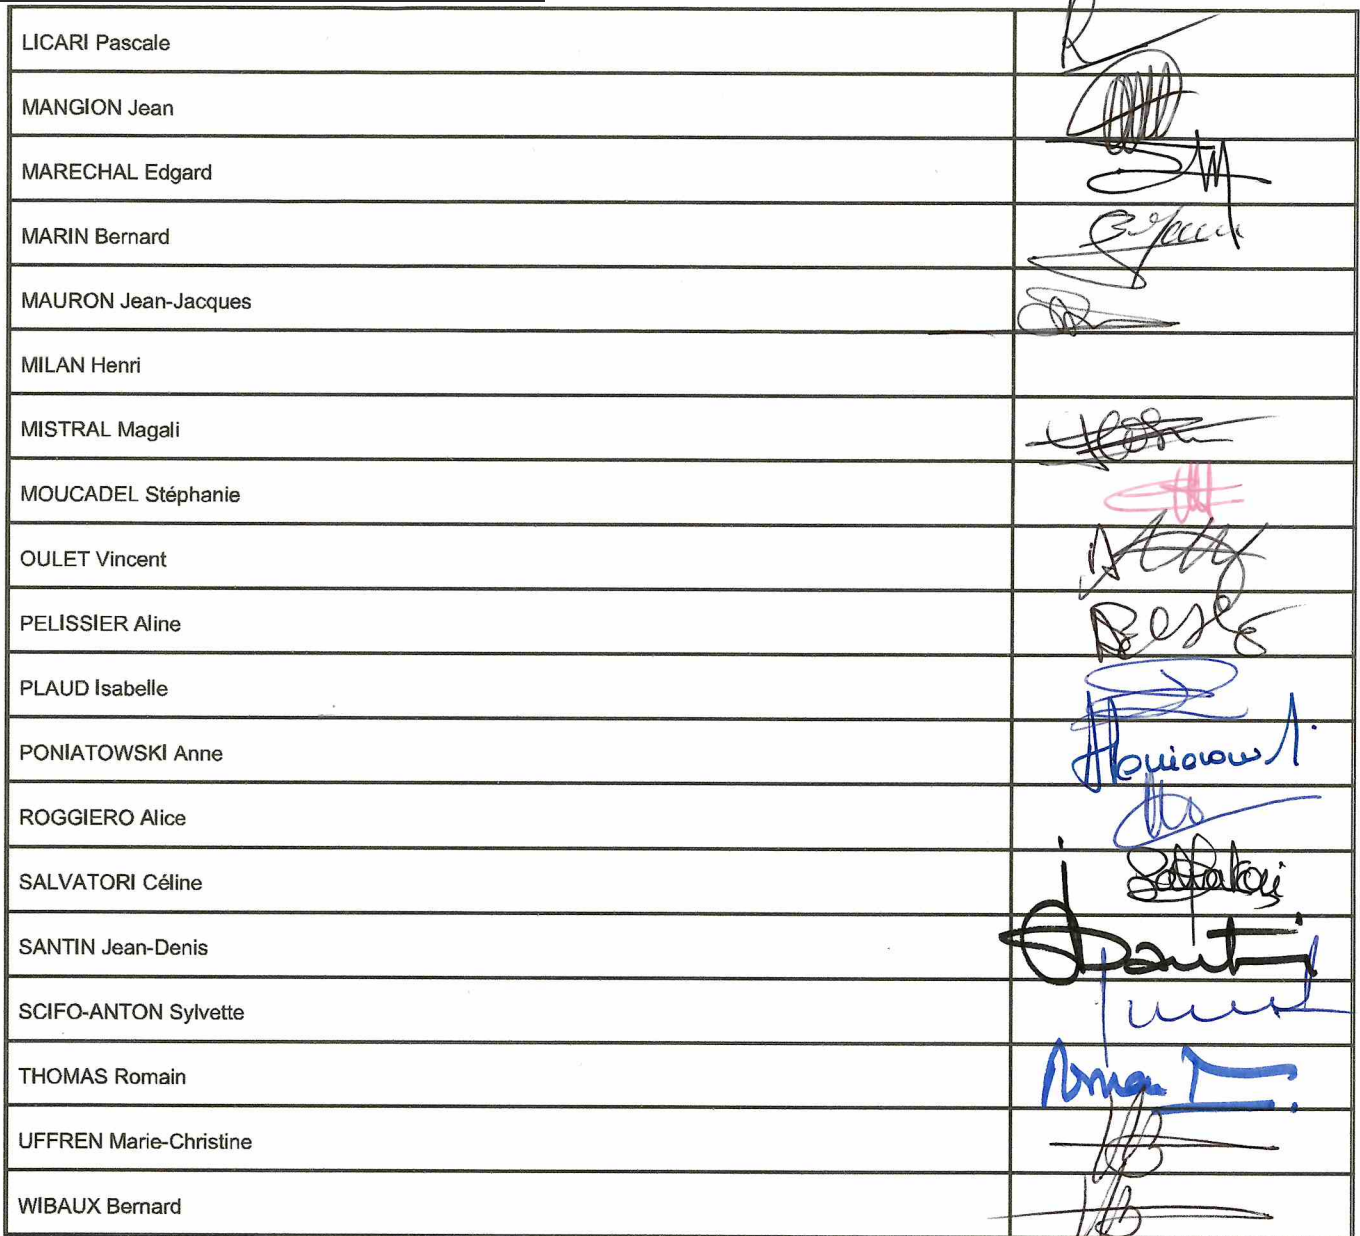 LICARI Pascale
MANGION Jean
MARECHAL Edgard
MARIN Bernard
MAURON Jean-Jacques
MILAN Henri
MISTRAL Magali
MOUCADEL Stéphanie
OULET Vincent
PELISSIER Aline
PLAUD Isabelle
PONIATOWSKI Anne
ROGGIERO Alice
SALVATORI Céline
SANTIN Jean-Denis
SCIFO-ANTON Sylvette
THOMAS Romain
UFFREN Marie-Christine
WIBAUX Bernard